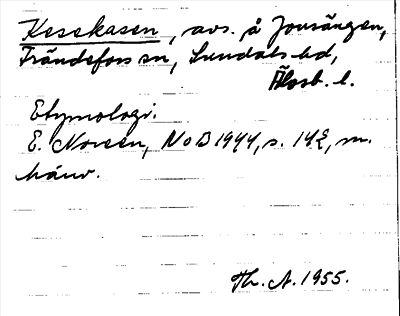 Kesekasen, avs. å Jonsängen,
Frändefors sn, Sundals hd,
Älvsb. l.
Etymologi.
E. Noreen, NoB 1944, s. 142, m.
hänv.
Th. A. 1955.